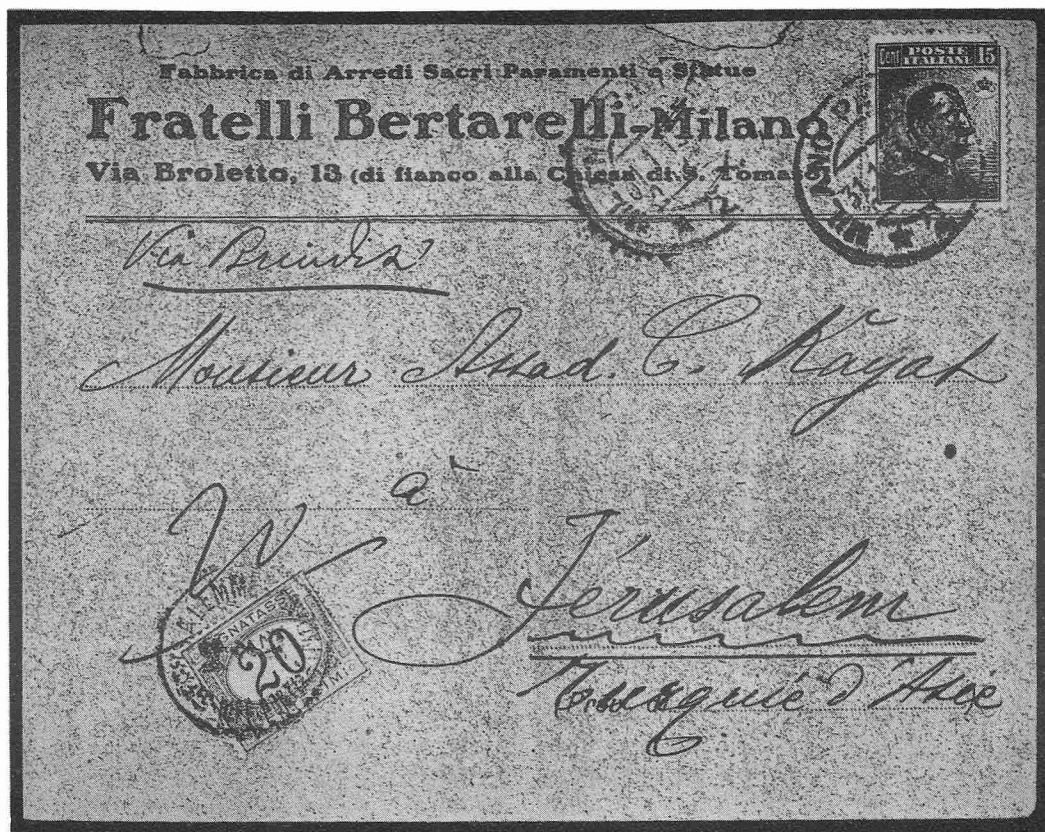 Fabbrica di Arredi Sacri Paramenti e Statue
Fratelli Bertarelli-Milano
Via Broletto, 13 (di fianco alla Chiesa di S. Tomaso
Cent POSTE ITALIANE 15
Via Brindisi
Monsieur Assad. C. Kayat
à
Jérusalem
Turquie d'Asie
SEGNATASSE
20